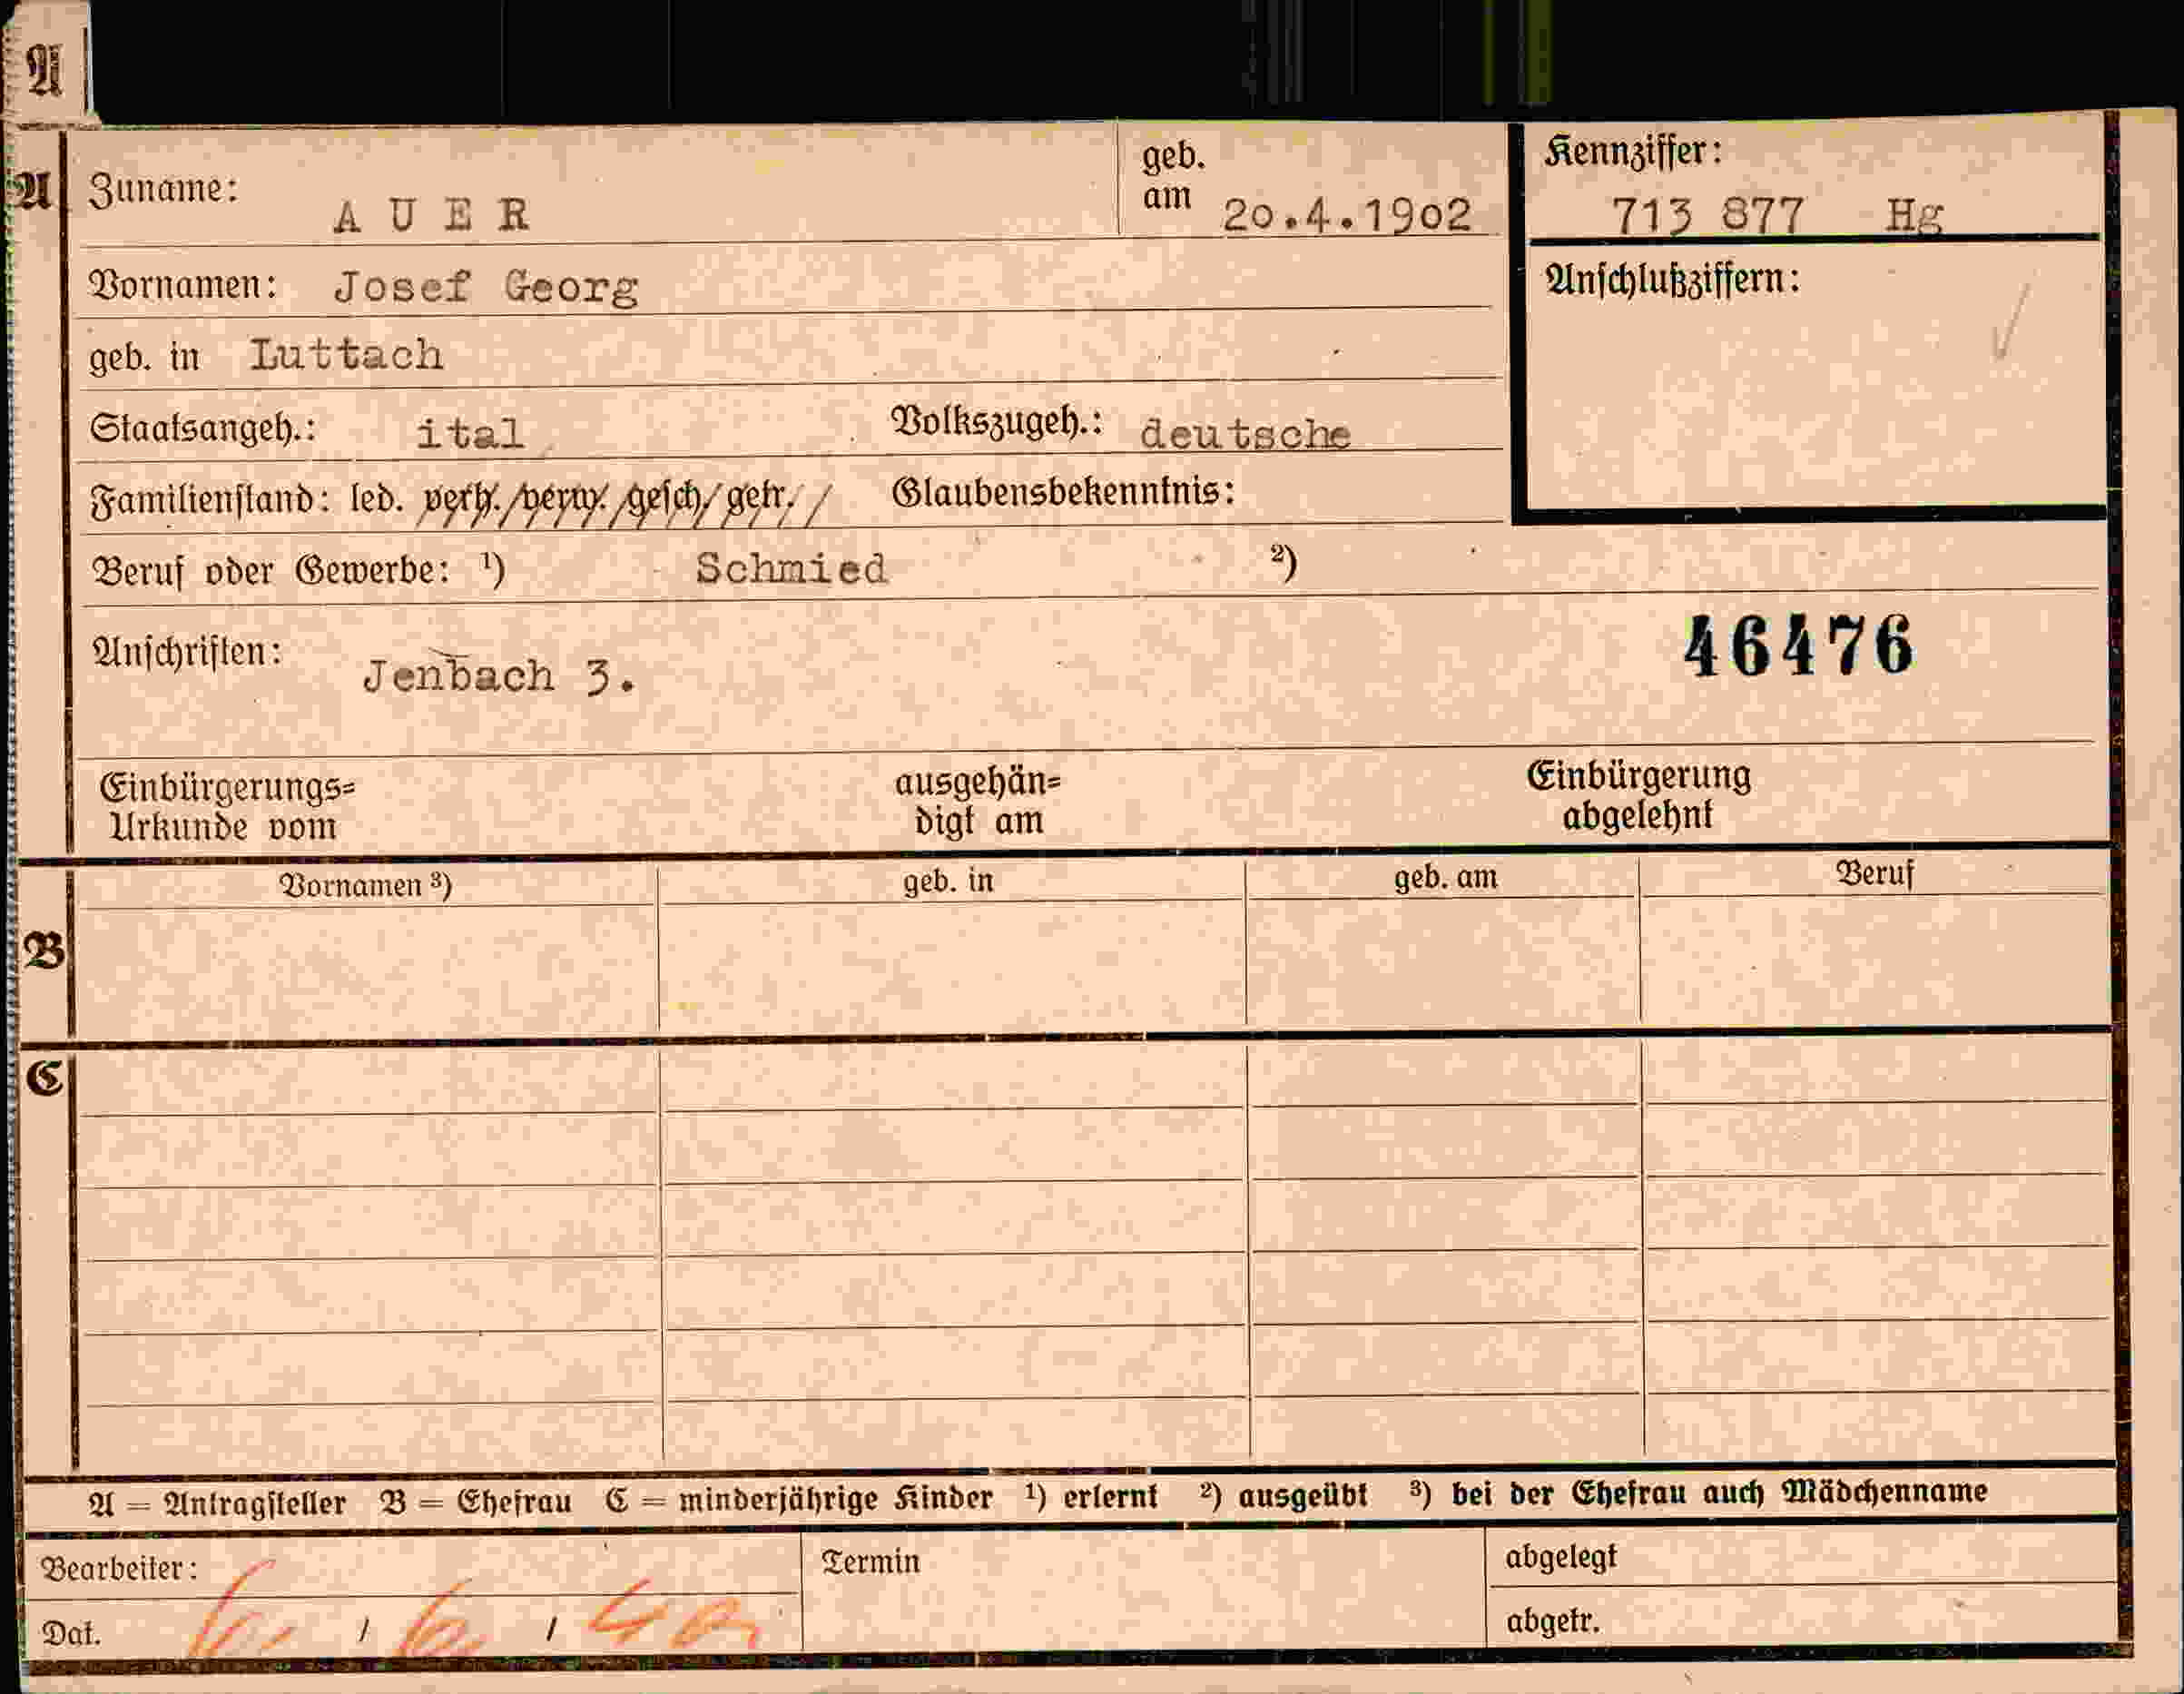 A
A Zuname: AUER geb. am 20.4.1902 Kennziffer: 713 877 Hg
Vornamen: Josef Georg Anschlußziffern:
geb. in Luttach
Staatsangeh.: ital Volkszugeh.: deutsche
Familienstand: led. verh./verw./gesch/getr./ Glaubensbekenntnis:
Beruf oder Gewerbe: ¹) Schmied ²)
46476
Anschriften: Jenbach 3.
Einbürgerungs= Urkunde vom ausgehän= digt am Einbürgerung abgelehnt
Vornamen ³) geb. in geb. am Beruf
B
C
A = Antragsteller B = Ehefrau C = minderjährige Kinder ¹) erlernt ²) ausgeübt ³) bei der Ehefrau auch Mädchenname
Bearbeiter: Termin abgelegt
Dat. 6. / 6. / 40 abgetr.